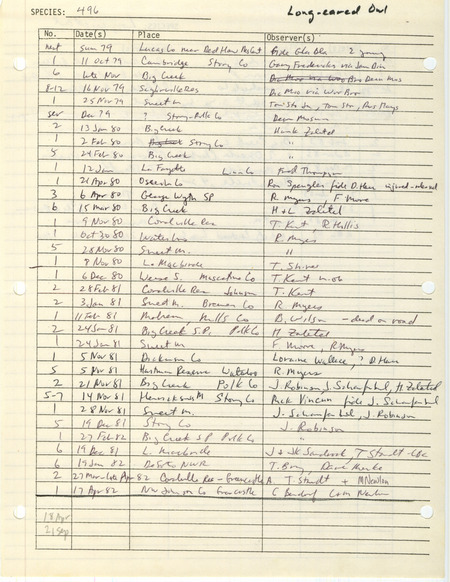 SPECIES: 496 Long-eared Owl
No. Date(s) Place Observer(s)
nest Sum 79 Lucas Co near Red Haw 2 young
1 11 Oct 79 Cambridge Story Co Gary
6 late Nov Big Creek Dean Mos
8-12 16 Nov 79 Saylorville Res
1 25 Nov 79 Sweet M.
sev Dec 79 ? Story-Polk Co Dean Mosman
2 13 Jan 80 Big Creek Hank Zaletel
1 2 Feb 80 Story Co "
5 24 Feb 80 Big Creek "
1 12 Jan La Fayette Linn Co Fred Thompson
1 26 Apr 80 Osceola Co Ron Spengler fide D. Harr injured-released
3 6 Apr 80 George Wyth SP R. Myers, F Moore
6 15 Mar 80 Big Creek H+L Zaletel
1 9 Nov 80 Coralville Res T. Kent, R Hollis
1 Oct 30 80 Waterloo R. Myers
5 28 Nov 80 Sweet M. "
1 8 Nov 80 L. MacBride T. Shires
1 6 Dec 80 Muscatine Co T. Kent m.ob
2 28 Feb 81 Coralville Res Johnson T. Kent
2 3 Jan 81 Sweet M. Bremer Co R Myers
1 11 Feb 81 Malvern, Mills Co B. Wilson - dead on road
2 24 Jan 81 Big Creek S.P. Polk Co H Zaletel
1 24 Jan 81 Sweet M F Moore, R Myers
1 5 Nov 81 Dickinson Co Lorraine Wallace, ? D. Harr
5 5 Nov 81 Hartman Reserve Waterloo R. Myers
2 21 Nov 81 Big Creek Polk Co J. Robinson J. Schaufenbuel, H Zaletel
5-7 14 Nov 81 Story Co fide J. Schaufenbuel
1 28 Nov 81 Sweet M. J. Schaufenbuel, J. Robinson
5 19 Dec 81 Story Co J. Robinson
1 27 Feb 82 Big Creek SP Polk Co "
6 19 Dec 81 L. MacBride J + JK Sandrock, T Staudt - CBC
6 19 Jan 82 DeSoto NWR T. Bray,
2 27 Mar-late Apr 82 Coralville Res - Greencastle A. T Staudt + M Newlon
1 17 Apr 82 NW Johnson Co Greencastle C Bendorf
18 Apr
21 Sep